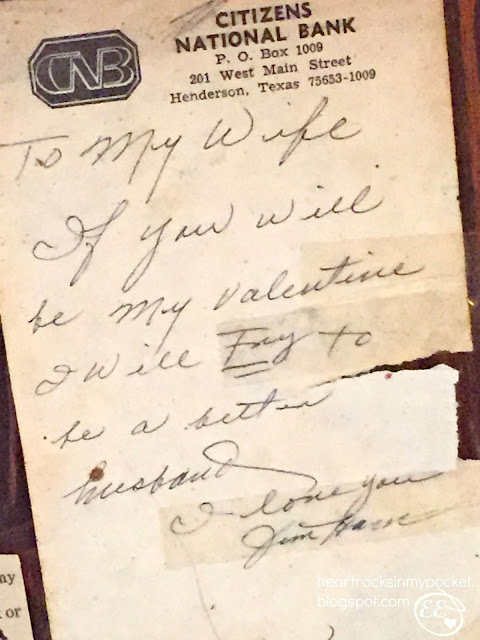 CNB
CITIZENS
NATIONAL BANK
P. O. Box 1009
201 West Main Street
Henderson, Texas 75653-1009
To My Wife
If you will
be my valentine
I will Try to
be a better
husband
I love you
Jim
or
heartrocksinmypocket.
blogspot.com